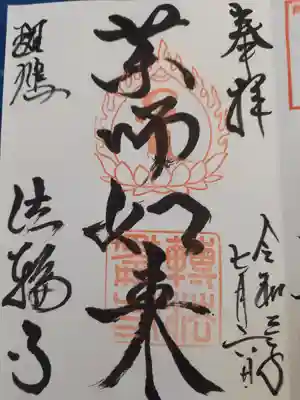 奉拝
令和三年
七月六日
薬師如来
斑鳩
法輪寺